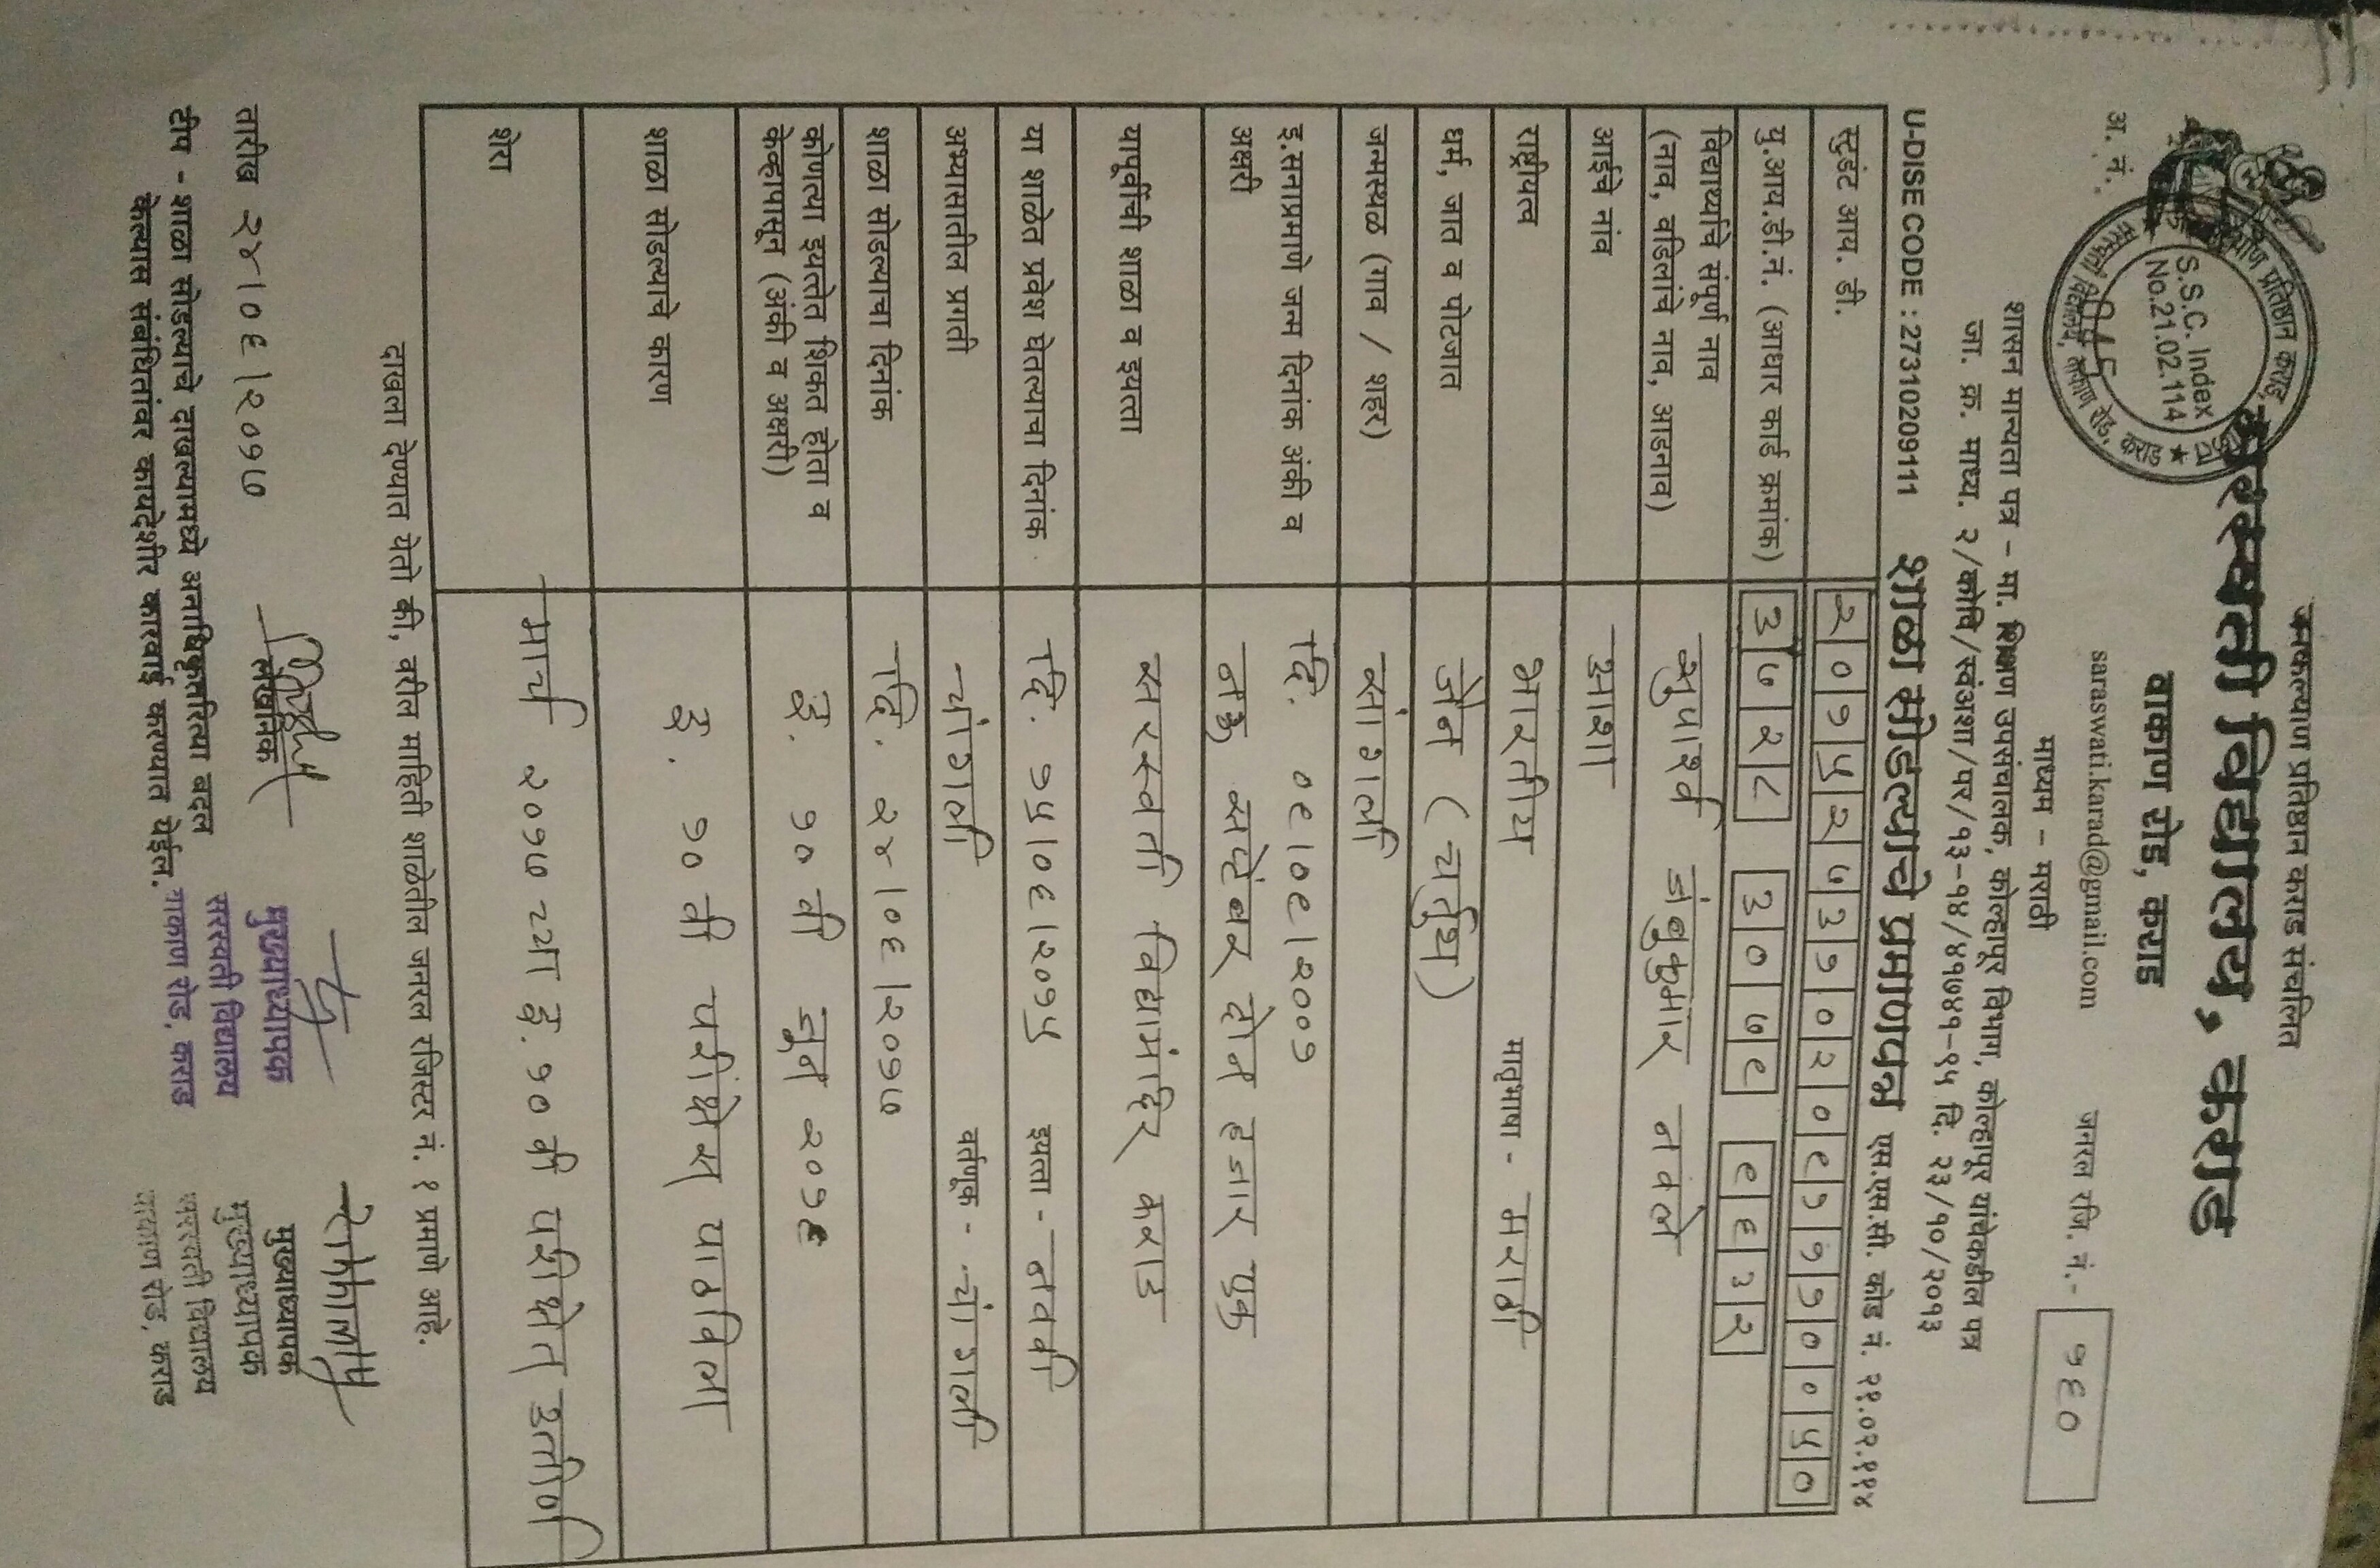 जनकल्याण प्रतिष्ठान कराड संचलित
सरस्वती विद्यालय, कराड
वाकाण रोड, कराड
saraswati.karad@gmail.com
जनरल रजि. नं.- १६०
अ. नं.
S.S.C. Index
No.21.02.114
माध्यम - मराठी
शासन मान्यता पत्र - मा. शिक्षण उपसंचालक, कोल्हापूर विभाग, कोल्हापूर यांचेकडील पत्र
जा. क्रं. माध्य. २/कोवि/स्वंअशा/पर/१३-१४/४१७४१-१५ दि. २३/१०/२०१३
U-DISE CODE : 27310209111 शाळा सोडल्याचे प्रमाणपत्र एस.एस.सी. कोड नं. २१.०२.११४
स्टुडंट आय. डी. २०१५२७३१०२०९११९००५०
यु.आय.डी.नं. (आधार कार्ड क्रमांक) ३७२८ ३०७९ ९६३२
विद्यार्थ्याचे संपूर्ण नाव
(नाव, वडिलांचे नाव, आडनाव) सुपार्श्व जंबुकुमार नवले
आईचे नांव आशा
राष्ट्रीयत्व भारतीय मातृभाषा - मराठी
धर्म, जात व पोटजात जैन (चतुर्थ)
जन्मस्थळ (गाव / शहर) सांगली
इ.सनाप्रमाणे जन्म दिनांक अंकी व दि. ०९/०९/२००१
अक्षरी नऊ सप्टेंबर दोन हजार एक
यापूर्वीची शाळा व इयत्ता सरस्वती विद्यामंदिर कराड
या शाळेत प्रवेश घेतल्याचा दिनांक दि. १५/०६/२०१५ इयत्ता - नववी
अभ्यासातील प्रगती चांगली वर्तणूक - चांगली
शाळा सोडल्याचा दिनांक दि. २४/०६/२०१७
कोणत्या इयत्तेत शिकत होता व
केव्हापासून (अंकी व अक्षरी) इ. १० वी जून २०१६
शाळा सोडल्याचे कारण इ. १० वी परीक्षेस पाठविला
शेरा मार्च २०१७ च्या इ. १० वी परीक्षेत उत्तीर्ण
दाखला देण्यात येतो की, वरील माहिती शाळेतील जनरल रजिस्टर नं. १ प्रमाणे आहे.
तारीख २४/०६/२०१७
लेखनिक
मुख्याध्यापक
सरस्वती विद्यालय
वाकाण रोड, कराड
मुख्याध्यापक
मुख्याध्यापक
सरस्वती विद्यालय
वाकाण रोड, कराड
टीप - शाळा सोडल्याचे दाखल्यामध्ये अनाधिकृतरित्या बदल
केल्यास संबंधितांवर कायदेशीर कारवाई करण्यात येईल.